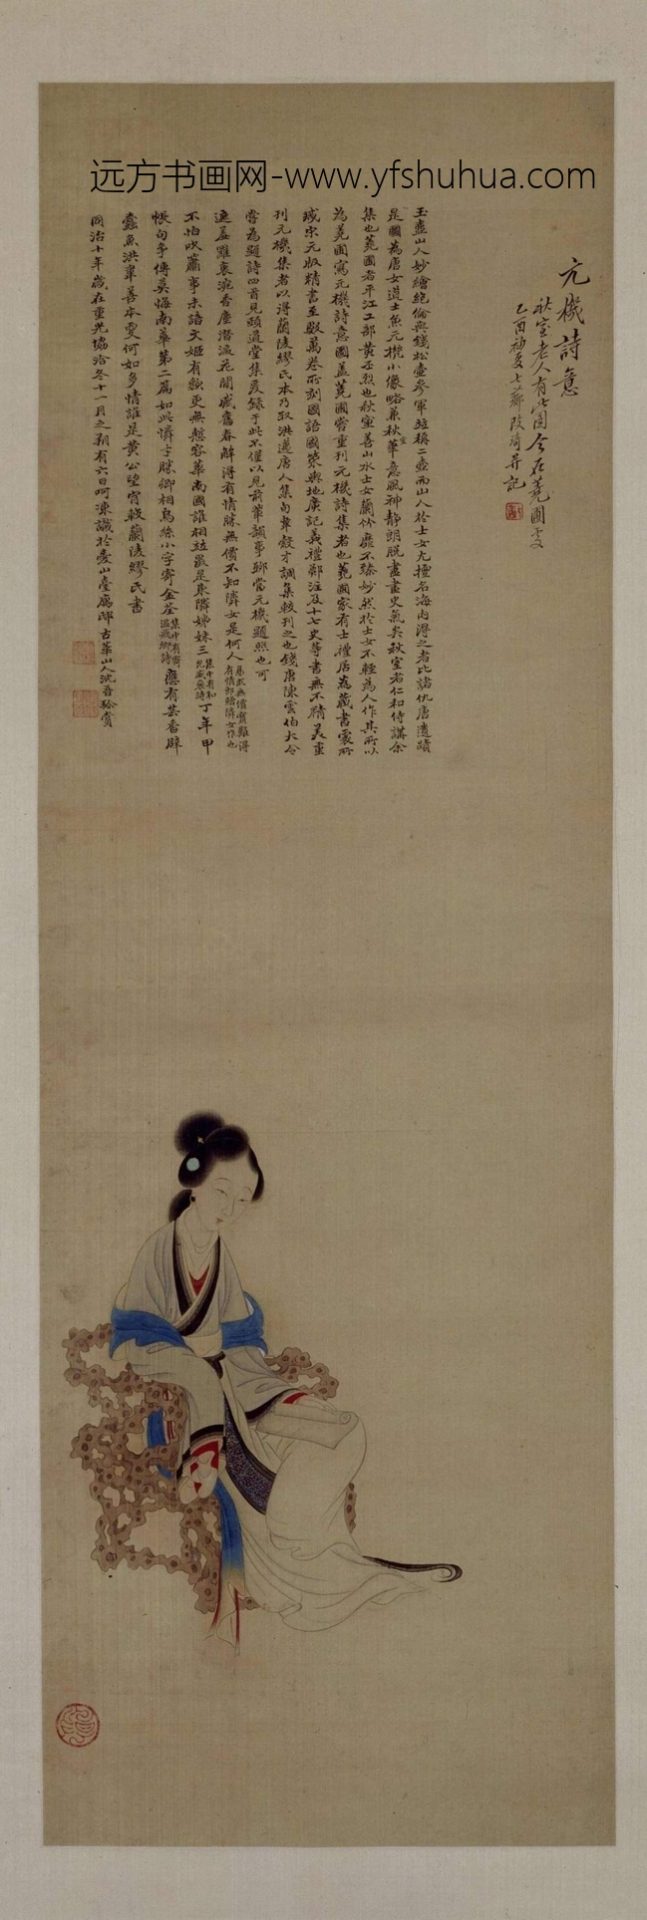 远方书画网-www.yfshuhua.com
元機詩意
秋室老人有此图今在蕘圃處
乙酉初夏七薌改琦并記
玉壺山人妙繪絕倫與錢松壺參軍並稱二壺兩山人於士女尤擅名海內得之者比諸仇唐遺蹟
是圖為唐女道士魚元機小像略兼秋室華意風神靜朗脫盡畫史氣矣秋室者仁和侍講余
集也蕘圃者平江工部黃丕烈也秋室善山水士女蘭竹靡不臻妙然於士女不輕為人作其所以
為蕘圃寫元機詩意圖蓋蕘圃嘗重刊元機詩集者也蕘圃家有士禮居為藏書處所
藏宋元版精書至數萬卷所刻國語國策與地廣記義禮鄭注及十七史等書無不精美重
刊元機集者以得蘭陵繆氏本乃取洪邁唐人集句韋縠才調集較刊之也錢唐陳雲伯大令
嘗為題詩四首見頤道堂集爰錄于此不僅以見前輩韻事聊當元機題照也可
連基雖衰漉香塵潛漉花間感舊春解得有情賕無價不知隣女是何人
不怕吹蕭事未諳文姬有縠更無慙容華南國誰相並最是東隣姊妹三丁年甲
帳句爭傳莫悔南華第二篇如此憐才賕卿相烏絲小字寄金荃應有芸香辟
蠹魚洪韋善本更何如多情誰是黃公望宵較蘭陵繆氏書
同治十年歲在重光協洽冬十一月之朔有六日呵凍識於愛山臺廨邸古華山人沈晉